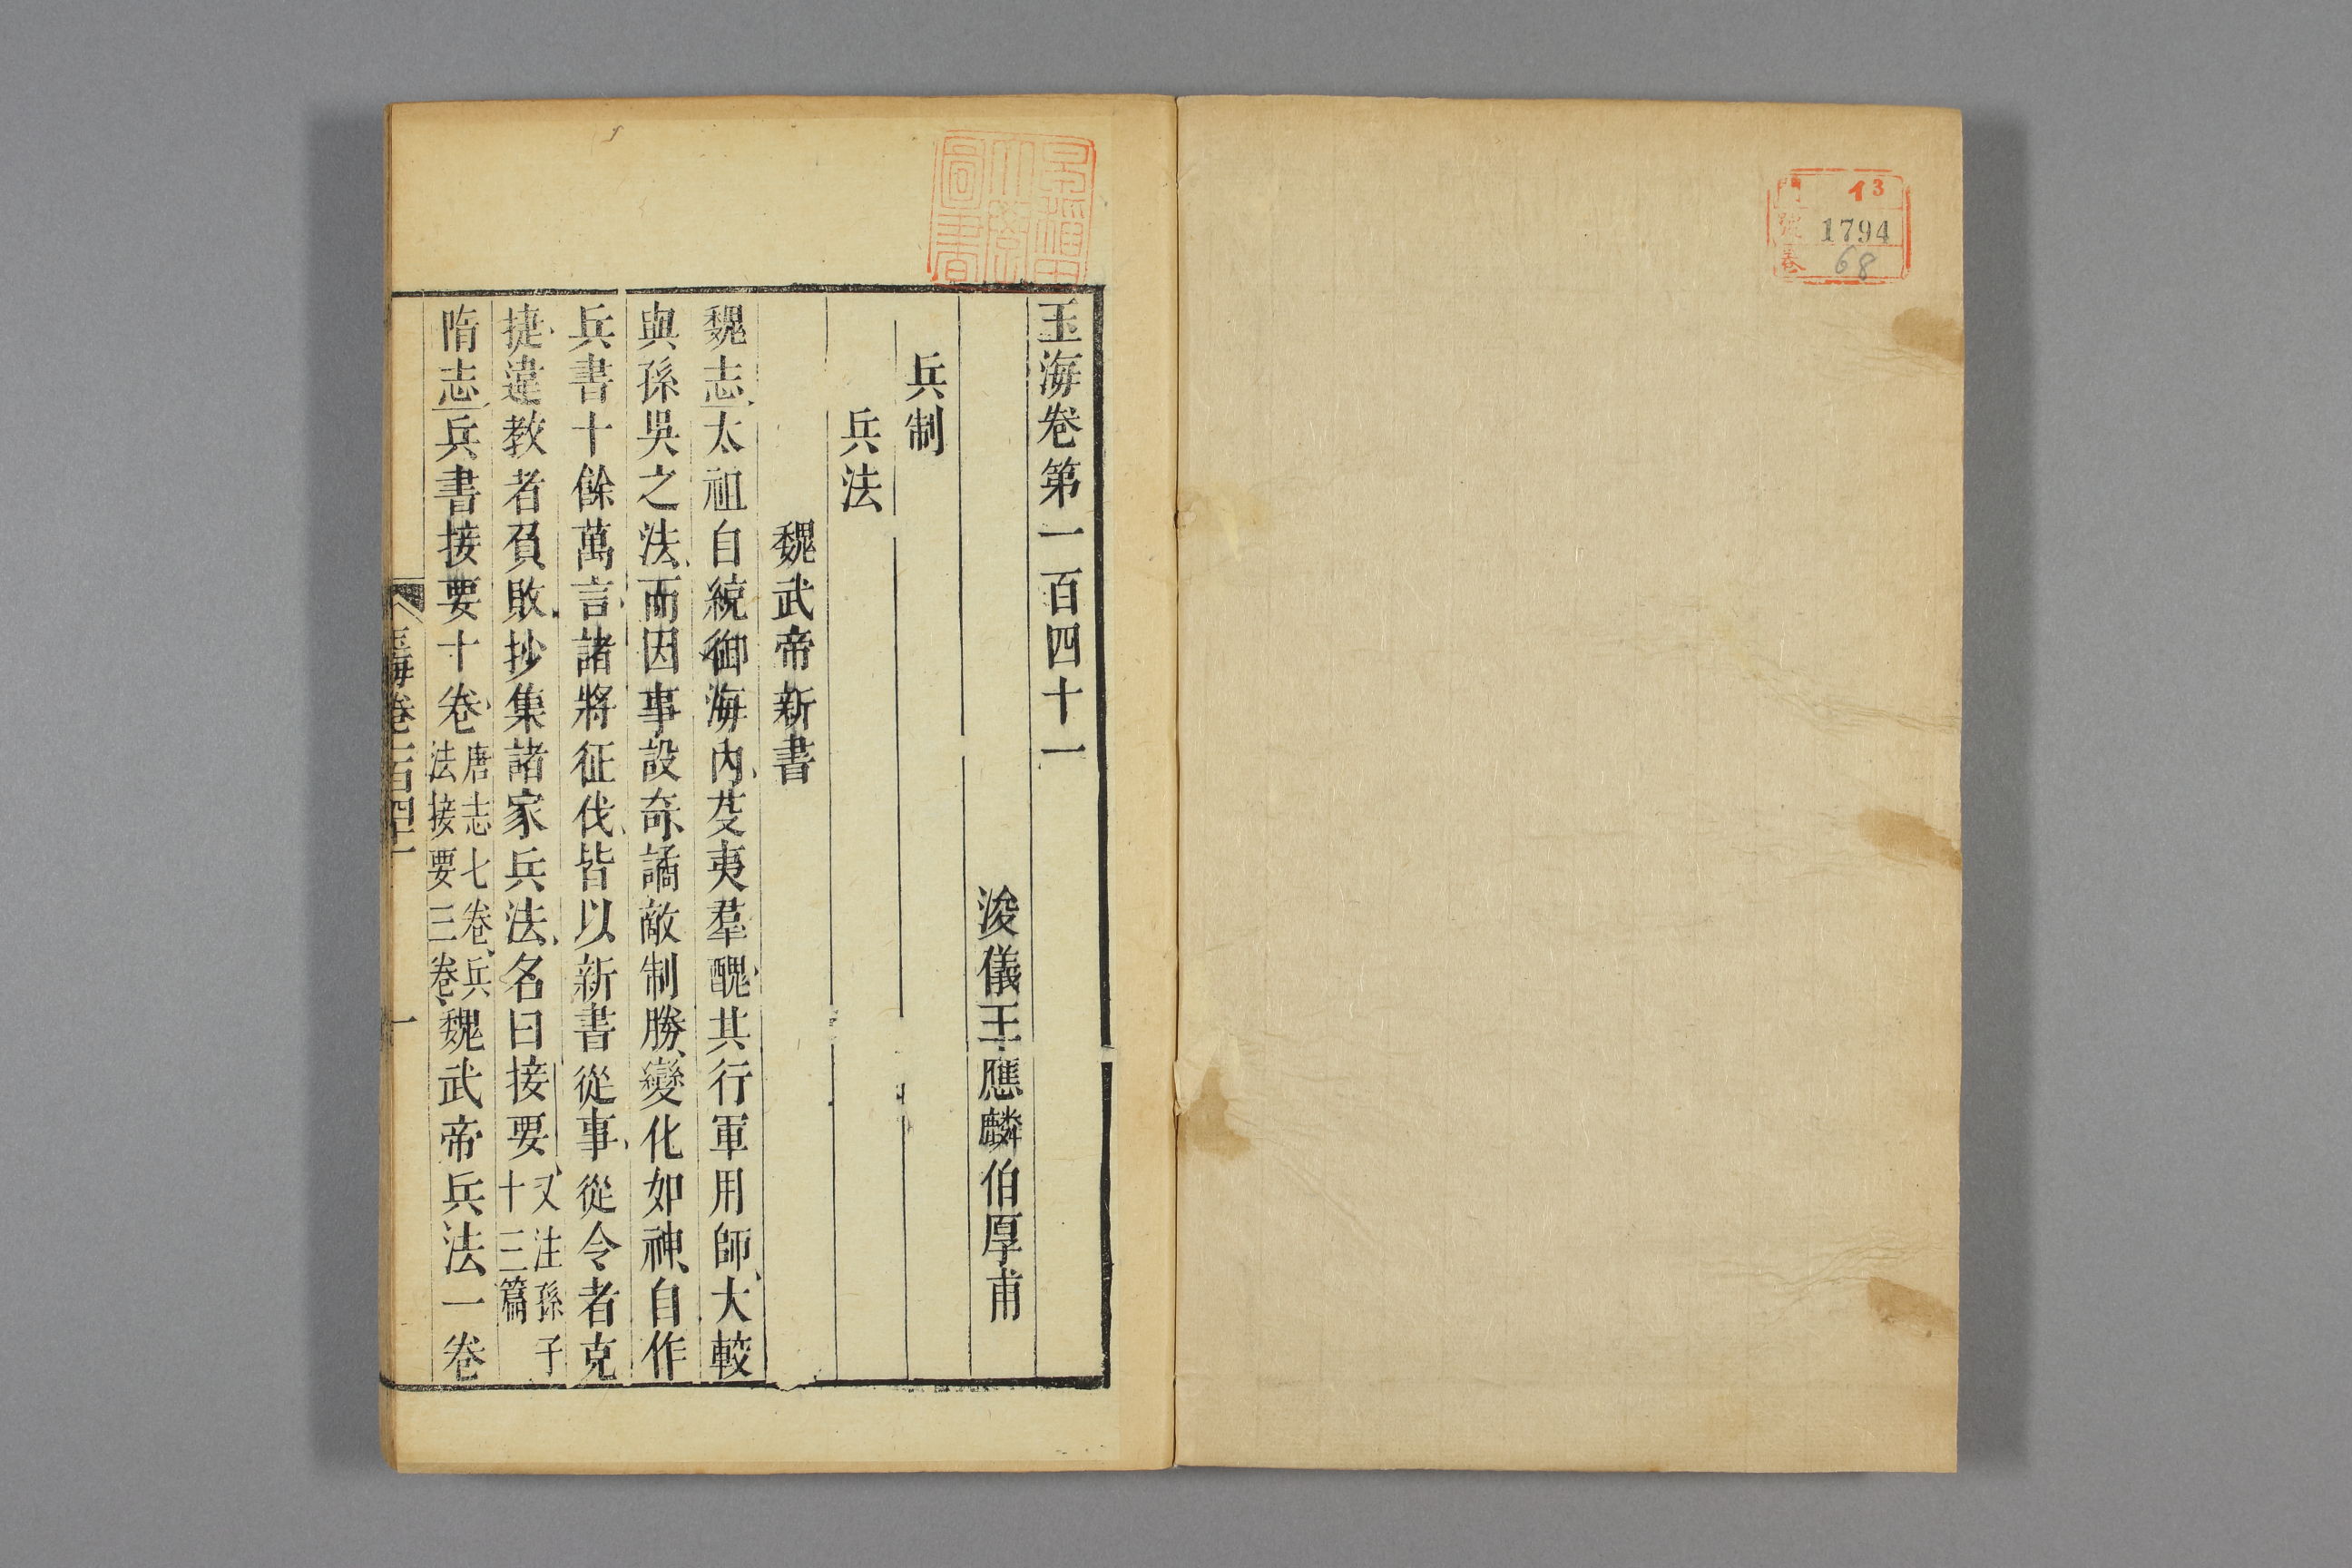 門 13
號 1794
卷 68
早稲田大學圖書
玉海卷第一百四十一
浚儀王應麟伯厚甫
兵制
兵法
魏武帝新書
魏志太祖自統御海內芟夷羣醜其行軍用師大較
與孫吳之法而因事設奇譎敵制勝變化如神自作
兵書十餘萬言諸將征伐皆以新書從事從令者克
捷違教者負敗抄集諸家兵法名曰接要又注孫子
十三篇
隋志兵書接要十卷唐志七卷兵
法接要三卷魏武帝兵法一卷
玉海卷一百四十一
一